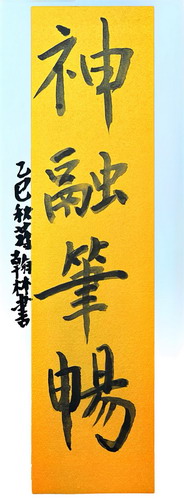 神融筆暢
乙巳秋菊翰林書